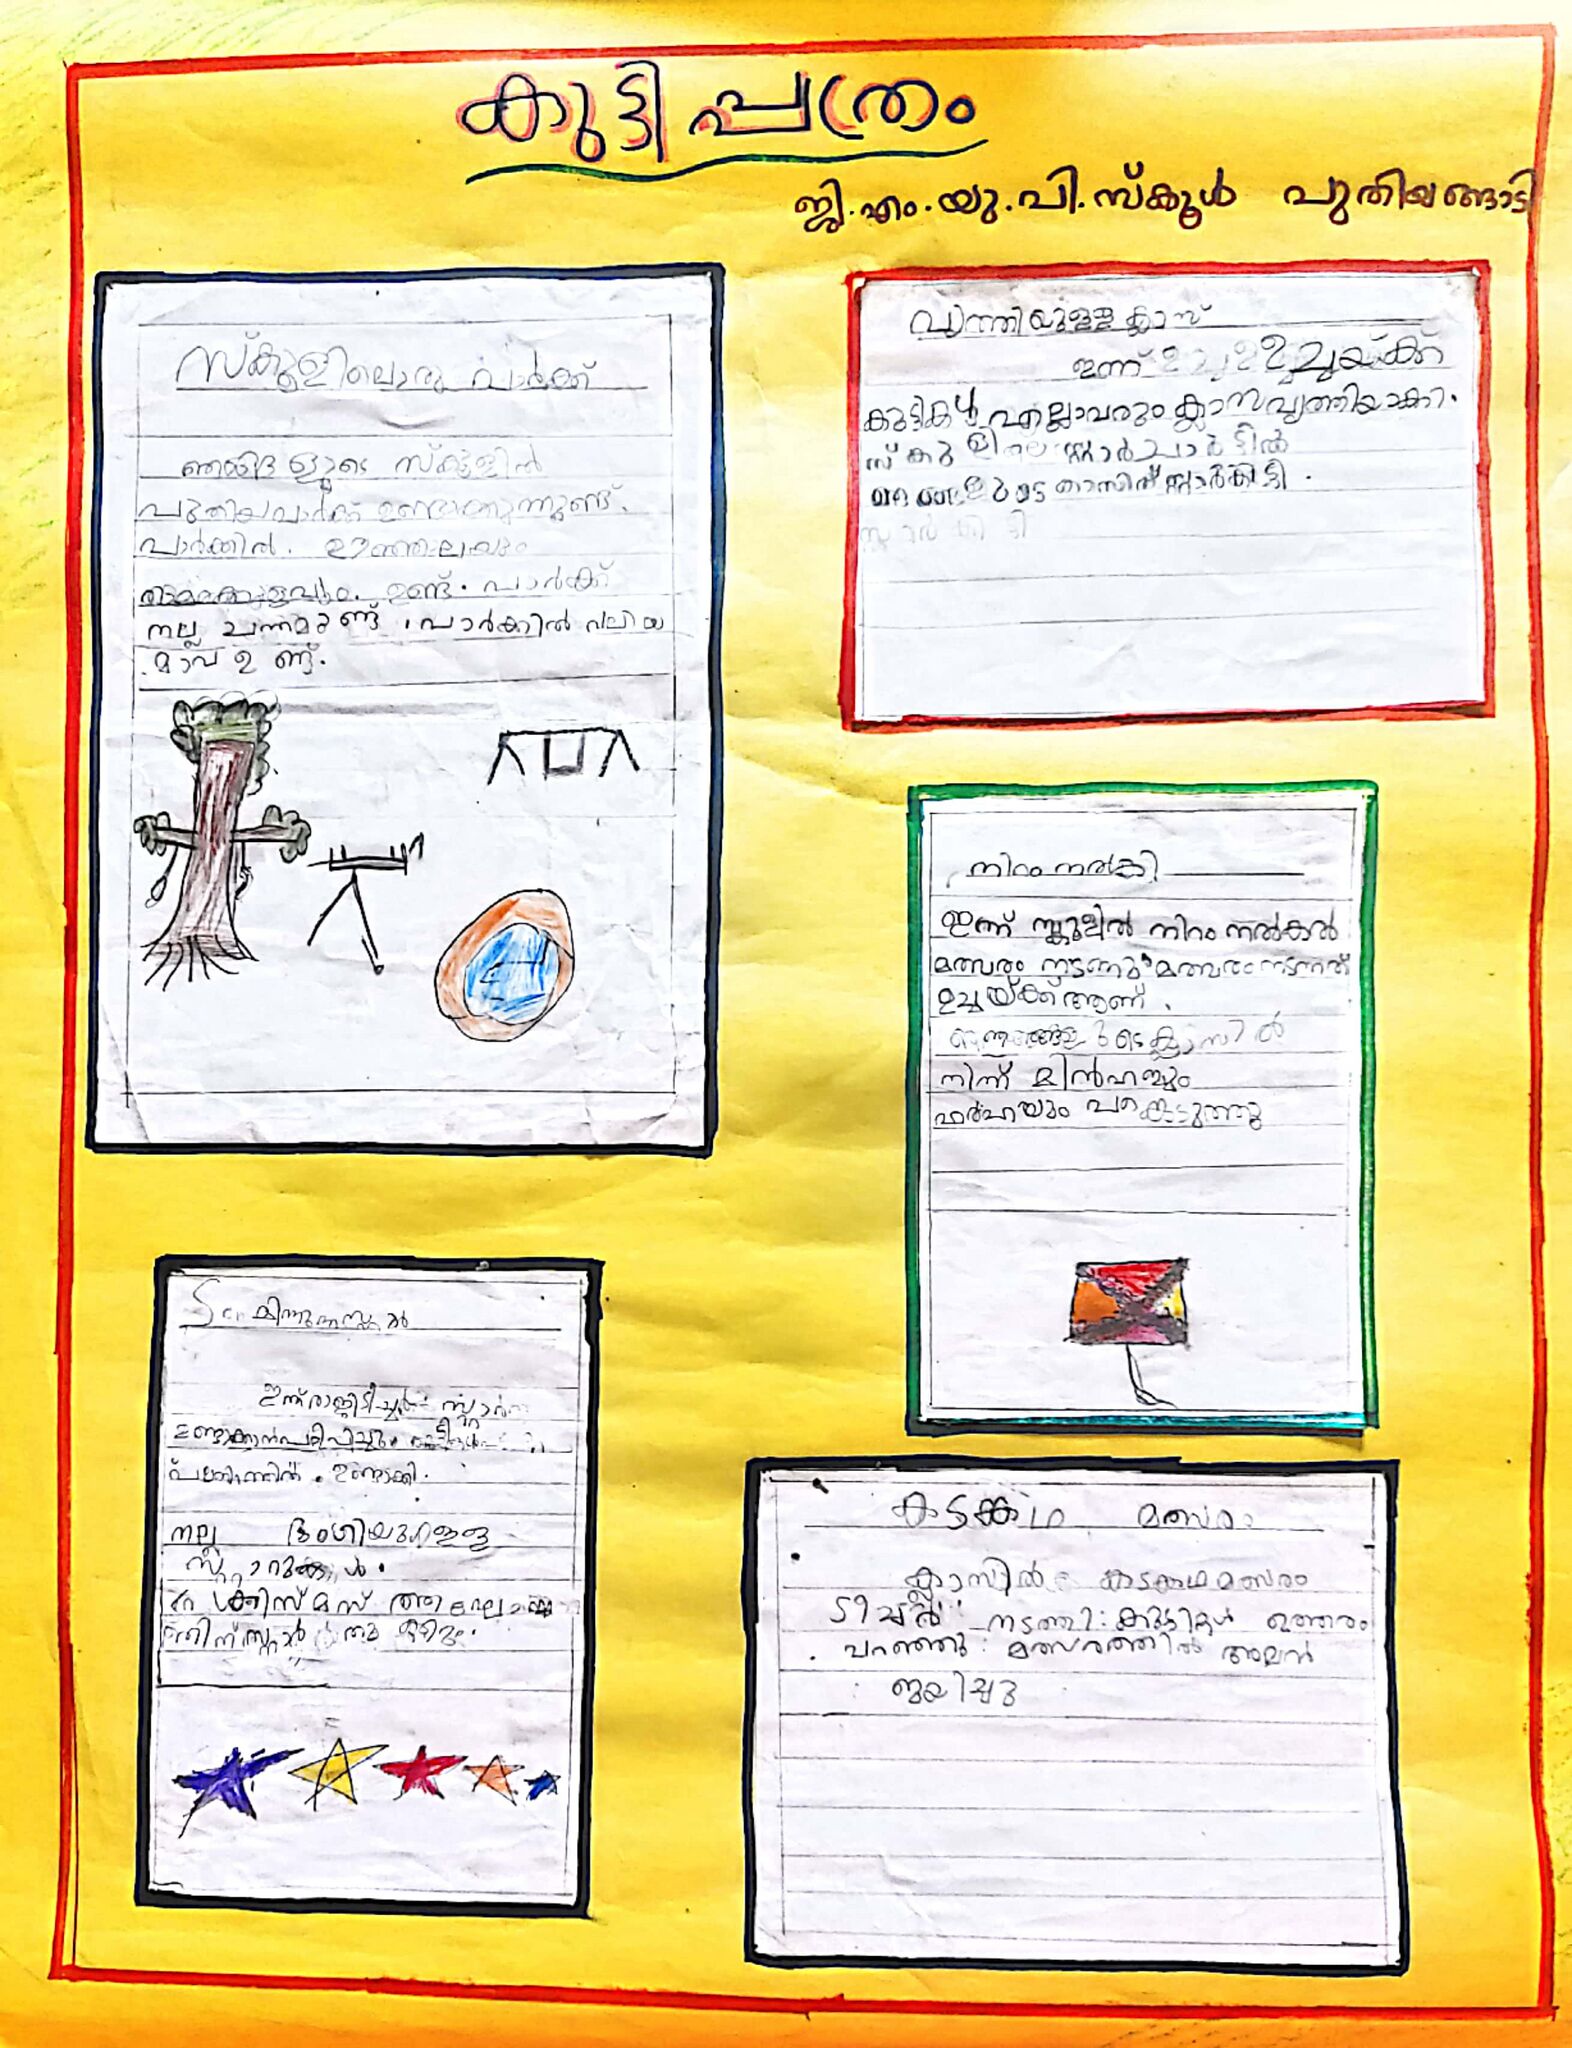 കുട്ടിപ്പത്രം
ജി.എം.യു.പി.സ്കൂൾ പുതിയങ്ങാടി
സ്കൂളിലൊരു പാർക്ക്
സ്കൂളിൽ
പുതിയപാർക്ക് ഉണ്ടാക്കുന്നുണ്ട്.
പാർക്കിൽ. ഊഞ്ഞാലയും
ആമക്കുളവും. ഉണ്ട്. പാർക്ക്
നല്ല ചന്തമുണ്ട്. പാർക്കിൽ വലിയ
മാവ് ഉണ്ട്.
വൃത്തിയുള്ള ക്ലാസ്
ഇന്ന് ഉച്ചയ്ക്ക്
കുട്ടികൾ എല്ലാവരും ക്ലാസ് വൃത്തിയാക്കി.
സ്കൂളിലെ സ്റ്റാർ ചാർട്ടിൽ
സ്റ്റാർ കിട്ടി.
സ്റ്റാർ കിട്ടി
നിറം നൽകി
ഇന്ന് സ്കൂളിൽ നിറം നൽകൽ
മത്സരം നടന്നു മത്സരം നടന്നത്
ഉച്ചയ്ക്ക് ആണ്.
ഞങ്ങളുടെ ക്ലാസിൽ
നിന്ന് മിൻഹയും
ഫർഹയും പങ്കെടുത്തു
മിന്നുന്ന സ്റ്റാർ
ഇന്ന് രാജിടീച്ചർ സ്റ്റാർ
ഉണ്ടാക്കാൻ പഠിപ്പിച്ചു
ഉണ്ടാക്കി.
നല്ല ഭംഗിയുള്ള
സ്റ്റാറുകൾ.
ക്രിസ്മസ്
കടങ്കഥ മത്സരം
ക്ലാസിൽ കടങ്കഥ മത്സരം
ടീച്ചർ നടത്തി. കുട്ടികൾ ഉത്തരം
പറഞ്ഞു. മത്സരത്തിൽ അമൻ
ജയിച്ചു